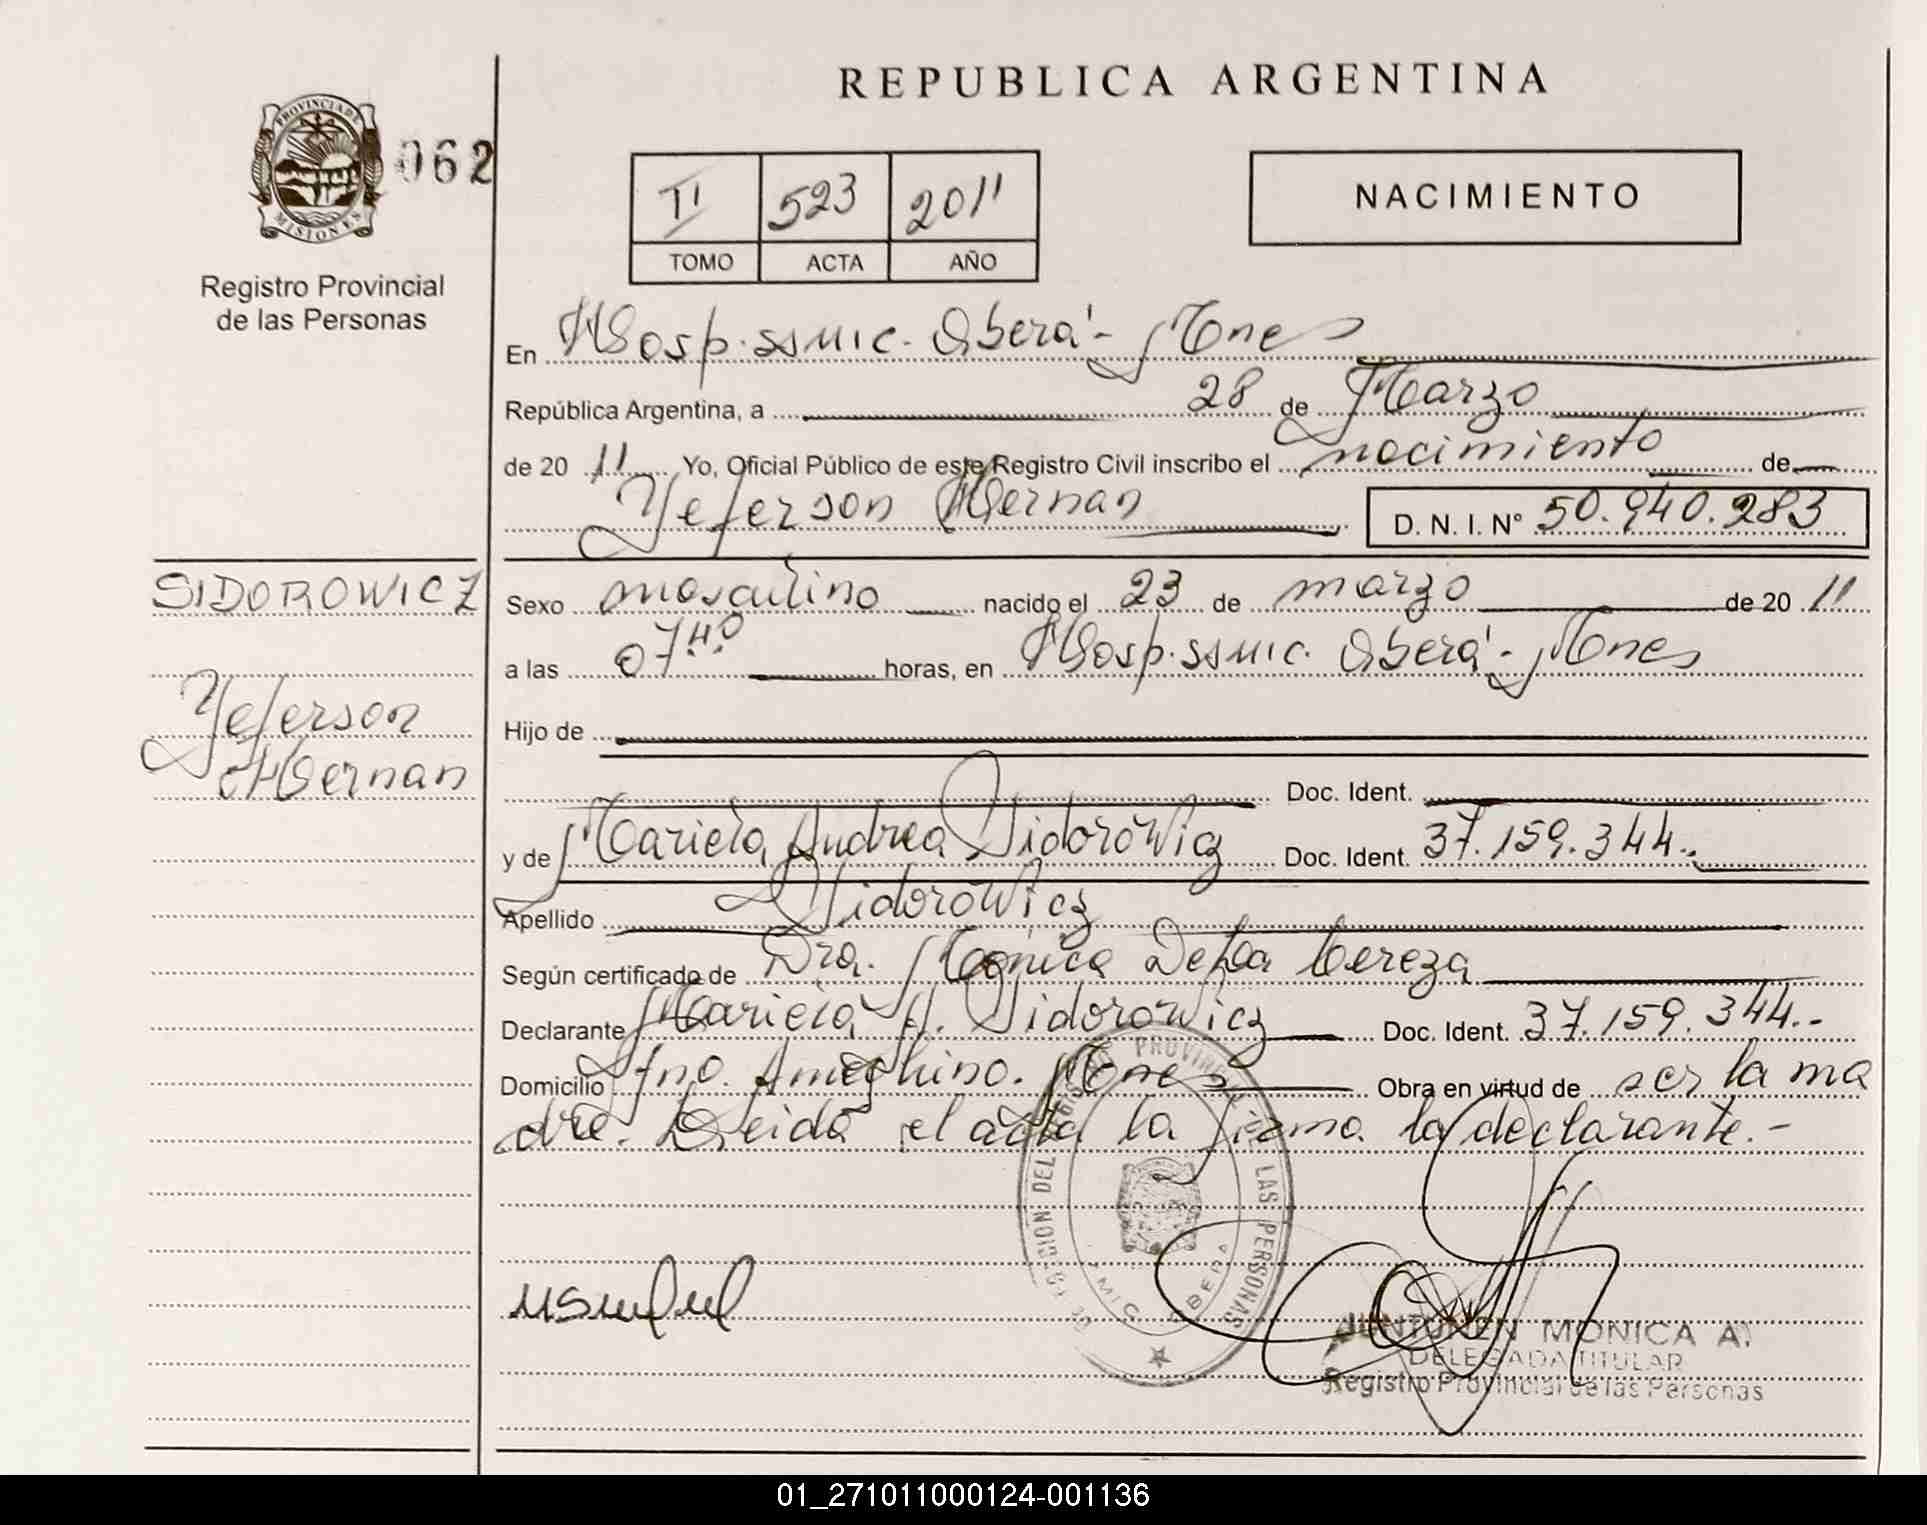 REPUBLICA ARGENTINA
PROVINCIA DE
MISIONES
062
Registro Provincial
de las Personas
II 523 2011
TOMO ACTA AÑO
NACIMIENTO
En Hosp. SSMIC. Oberá - Mnes
República Argentina, a 28 de Marzo
de 20 11 Yo, Oficial Público de este Registro Civil inscribo el nacimiento de
Yeferson Hernan D. N. I. N° 50.940.283
SIDOROWICZ
Yeferson
Hernan
Sexo masculino nacido el 23 de marzo de 20 11
a las 07.40 horas, en Hosp. SSMIC. Oberá - Mnes
Hijo de
Doc. Ident.
y de Mariela Andrea Sidorowicz Doc. Ident. 37.159.344.-
Apellido Sidorowicz
Según certificado de Dra. Mónica De La Cereza
Declarante Mariela A. Sidorowicz Doc. Ident. 37.159.344.-
Domicilio Fno. Ameghino. Mnes Obra en virtud de ser la ma
dre. Leida el acta la firma la declarante.-
PROVINCIAL DE LAS PERSONAS
OBERA
JUNTUNEN MONICA A.
DELEGADA TITULAR
Registro Provincial de las Personas
01_271011000124-001136